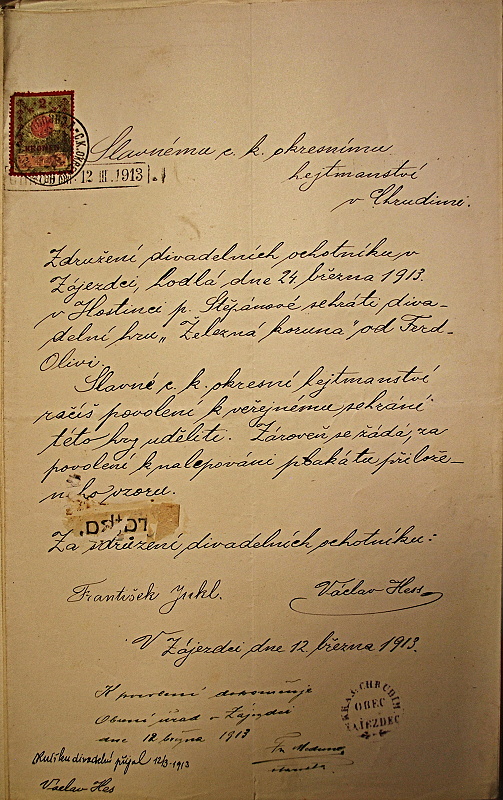 2
C.K. OKR
12 III. 1913
Slavnému c. k. okresnímu
hejtmanství
v Chrudimi.
Združení divadelních ochotníku v
Zájezdci, hodlá dne 24. března 1913.
v Hostinci p. Štěpánové sehráti diva-
delní hru „Železná koruna" od Ferd-
Olivi.
Slavné c. k. okresní hejtmanství
račiš povolení k veřejnému sehrání
této hry uděliti. Zároveň se žádá, za
povolení k nalepování plakátu přilože-
ného vzoru.
Za sdružení divadelních ochotníku:
František Jukl. Václav Hess
V Zájezdci dne 12. března 1913.
K povolení dokončuje
Obecní úřad v Zájezdci
dne 12 března 1913
OKRAJ. CHRUDIM.
OBEC
ZÁJEZDEC
divadelní přijal 12/3-1913
Vaclav Hes